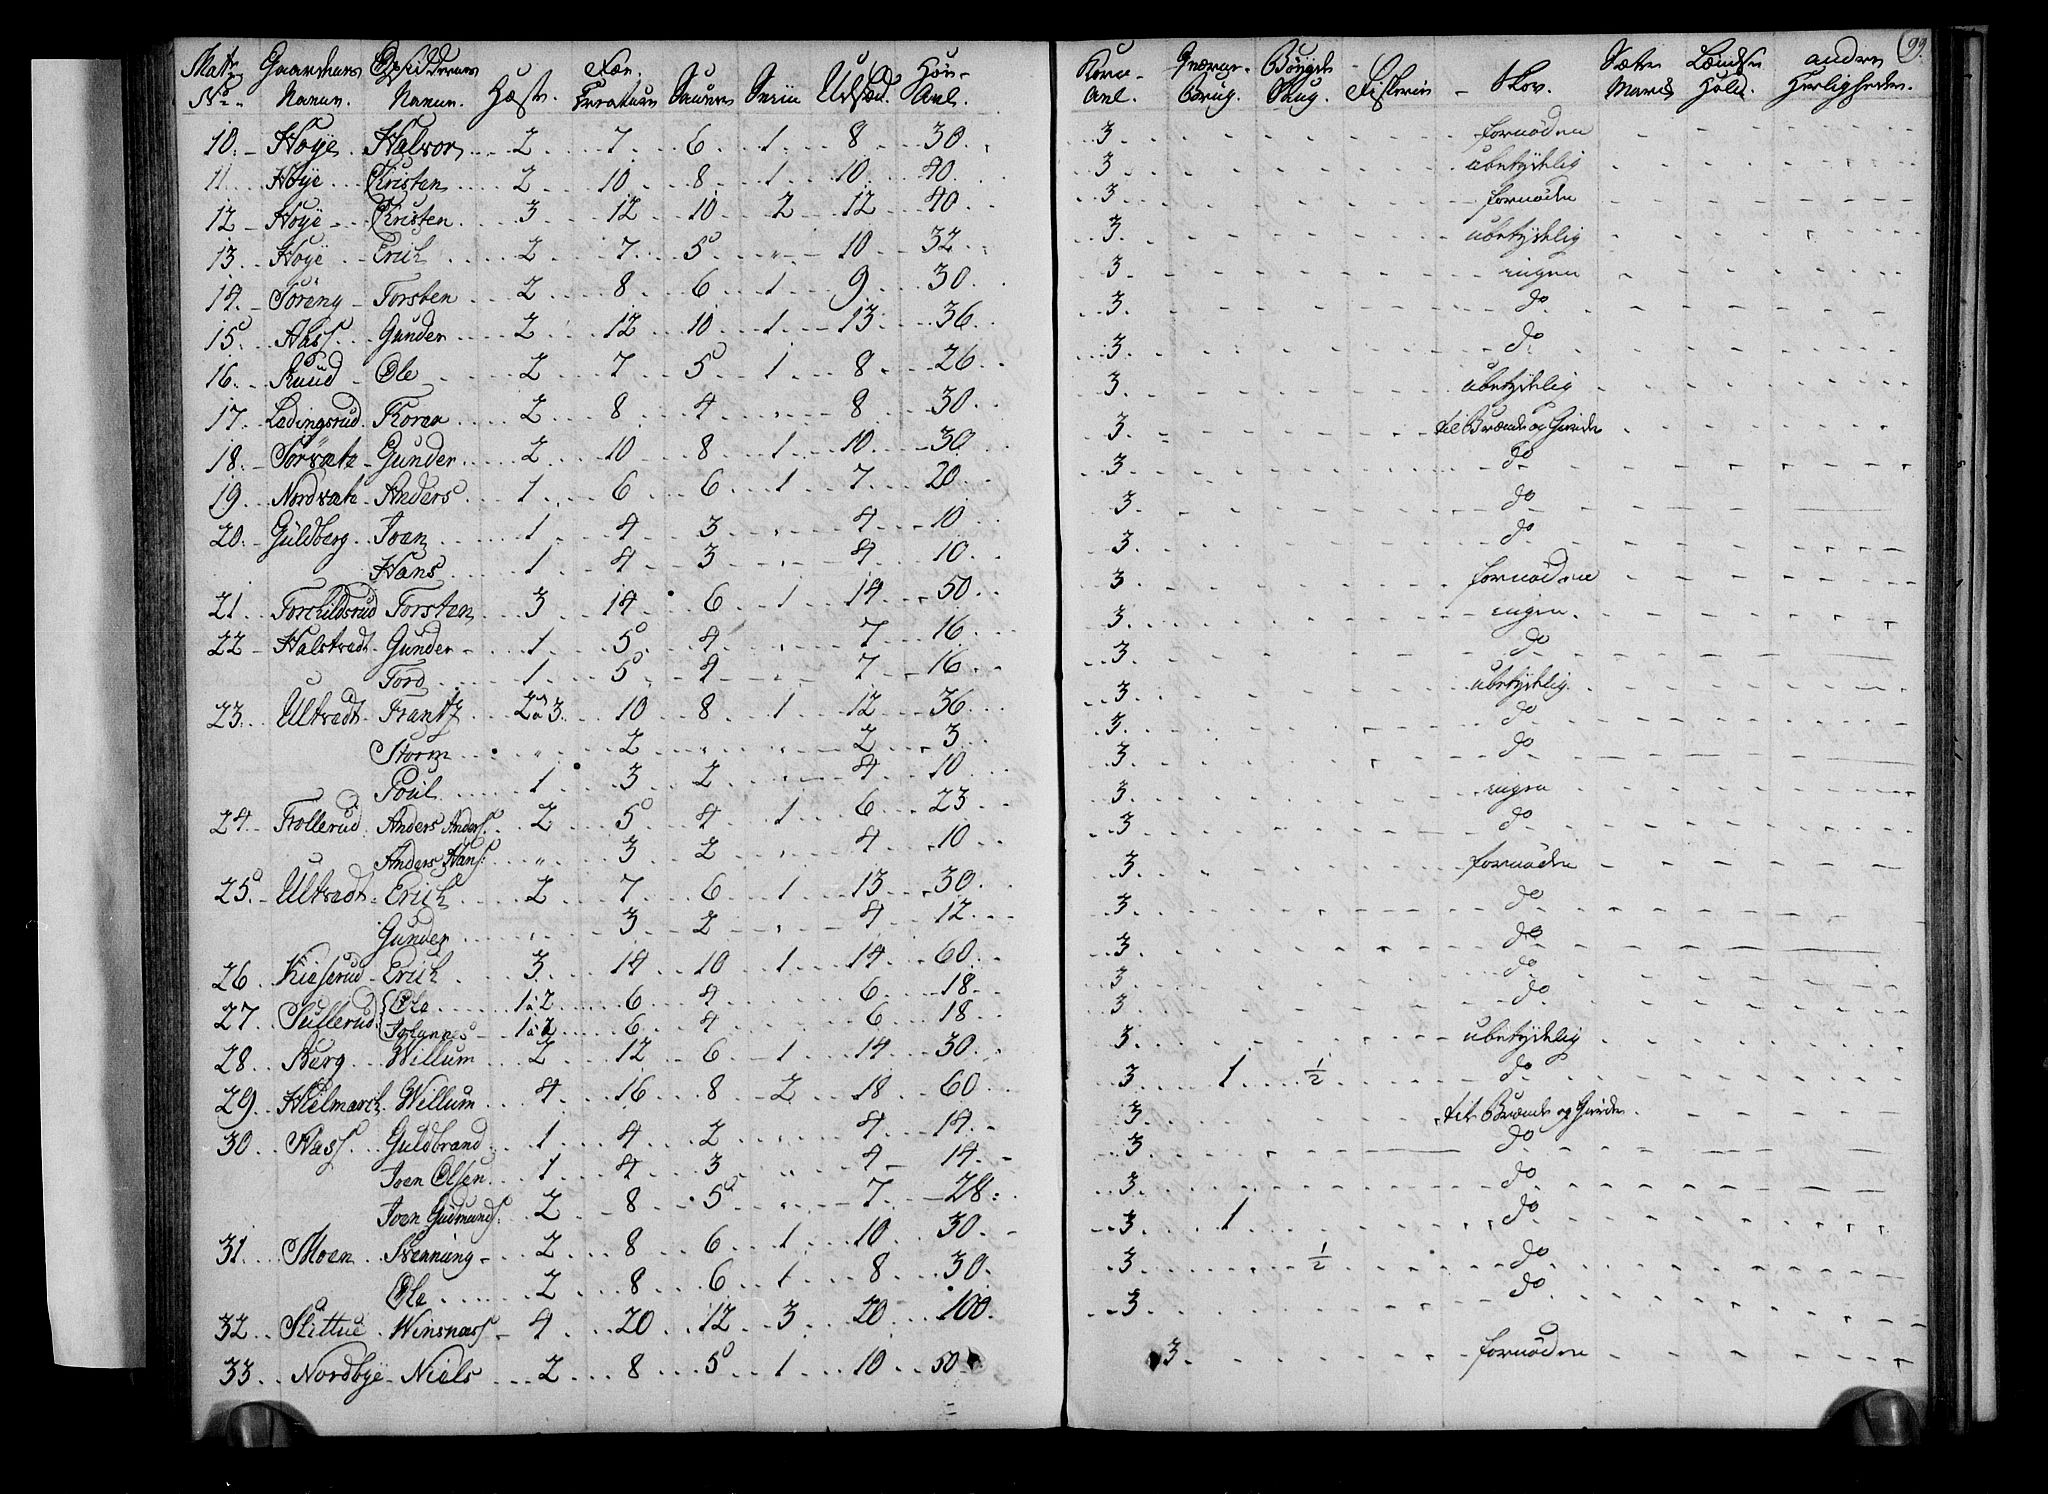 99.
Matr Gaardenes Opsiddernes Fæe- Høv-
No Navne. Navne. Hæste. Creature Sauer Sviin Udsæd. Avl.
Korn- Qværne- Bøygde- Sæter Lændse andre
Avl. brug. Saug. Fiskerie Skov. Mark Hold. Herligheder.
10. Høye Halvor 2 7 6 1 8 30 3 fornøden
11 Høye Kristen 2 10 8 1 10 40 3 ubetydelig
12 Høye Kristen 3 12 10 2 12 40 3 fornøden
13. Høye Erich 2 7 5 " 10 32 3 ubetydelig
14. Søreng Torsten 2 8 6 1 9 30 3 ingen
15. Aass Gunder 2 12 10 1 13 36 3 do
16. Ruud Ole 2 7 5 1 8 26 3 do
17. Ladingsrud Thorea 2 8 4 " 8 30 3 ubetydelig
18. Sørvete Gunder 2 10 8 1 10 30 3 til Brænde og Gierde
19. Nordvete Anders 1 6 6 1 7 20 3 do
20. Guldberg Joen 1 4 3 4 10 3 do
Hans 1 4 3 " 4 10 3 do
21 Torchildsrud Torsten 3 14 6 1 14 50 3 fornøden
22 Halstvedt Gunder 1 5 4 " 7 16 3 ingen
Tord 1 5 4 " 7 16 3 do
23. Ultvedt Frantz 2 à 3 10 8 1 12 36 3 ubetydelig
Storm " 2 " " 2 3 3 do
Poül 1 3 2 " 4 10 3 do
24. Trollerud Anders Anders. 2 5 4 1 6 23 3 ingen
Anders Hans: " 3 2 " 4 10 3 do
25. Ultvedt Erich 2 7 6 1 13 30 3 fornøden
Gunder " 3 2 " 4 12 3 do
26 Kieserud Erich 3 14 10 1 14 60 3 do
27. Sullerud Ole 1 à 2 6 4 6 18 3 do
Johannes 1 à 2 6 4 6 18 3 do
28. Berg Willum 2 12 6 1 14 30 3 ubetydelig
29. Hielmarck Willum 4 16 8 2 18 60 3 1 ½ do
30. Aass Guldbrand 1 4 2 " 4 14 3 til Brænde og Gierde
Joen Olsen 1 4 3 " 4 14 3 do
Joen Gudmunds. 2 8 5 " 7 28 3 do
31. Moen Svenning 2 8 6 1 10 30 3 1 do
Ole 2 8 6 1 8 30 3 ½ do
32. Skittue Winsness 4 20 12 3 20 100 3 do
33. Nordbye Niels 2 8 5 1 10 50 3 fornøden